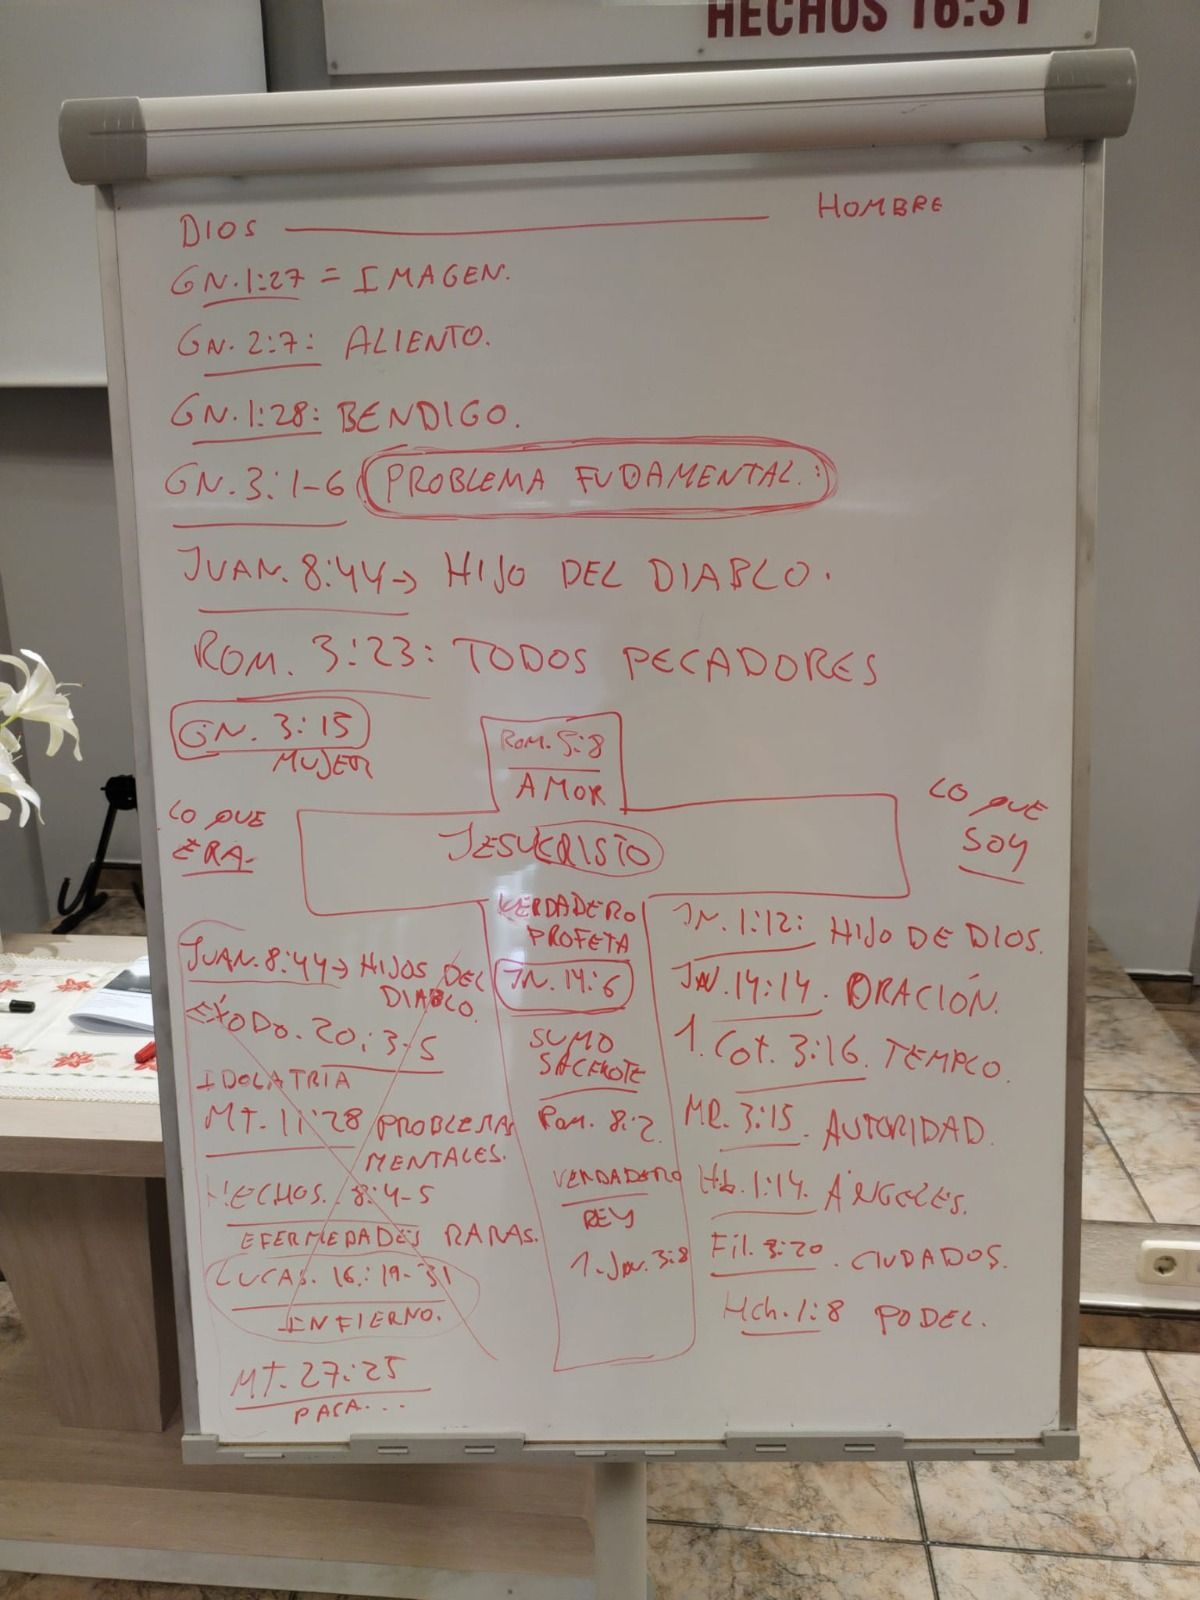 HECHOS 16:31
DIOS HOMBRE
GN. 1:27 = IMAGEN.
GN. 2:7: ALIENTO.
GN. 1:28: BENDIGO.
GN. 3:1-6 PROBLEMA FUDAMENTAL.:
JUAN. 8:44→ HIJO DEL DIABLO.
ROM. 3:23: TODOS PECADORES
GN. 3:15
MUJER
ROM. 5:8
AMOR
LO QUE
ERA-
JESUCRISTO
LO QUE
SOY
JUAN. 8:44→ HIJOS DEL
DIABLO.
EXODO. 20:3-5
IDOLATRIA
MT. 11:28 PROBLEMAS
MENTALES.
HECHOS. 8:4-5
EFERMEDADES RARAS.
LUCAS. 16:19-31
INFIERNO.
MT. 27:25
PASA...
VERDADERO
PROFETA
JN. 14:6
SUMO
SACEROTE
ROM. 8:2
VERDADERO
REY
1-Jn. 3:8
JN. 1:12: HIJO DE DIOS.
JN. 14:14. ORACIÓN.
1. Cot. 3:16 TEMPLO.
MR. 3:15. AUTORIDAD.
Hb. 1:14. ÁNGELES.
Fil. 3:20. CIUDADOS.
Hch. 1:8 PODEL.